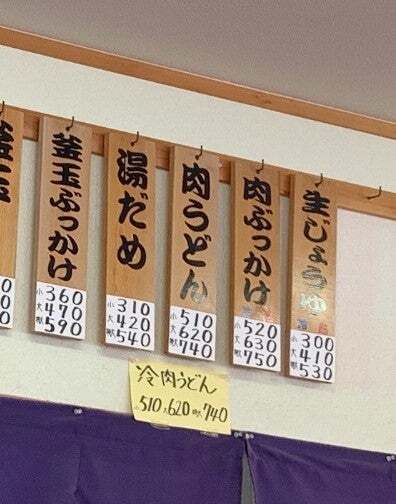 生じょうゆ
小 300
大 410
特 530
肉ぶっかけ
小 520
大 630
特 750
肉うどん
小 510
大 620
特 740
湯だめ
小 310
大 420
特 540
釜玉ぶっかけ
小 360
大 470
特 590
釜玉
冷肉うどん
小510 大620 特740